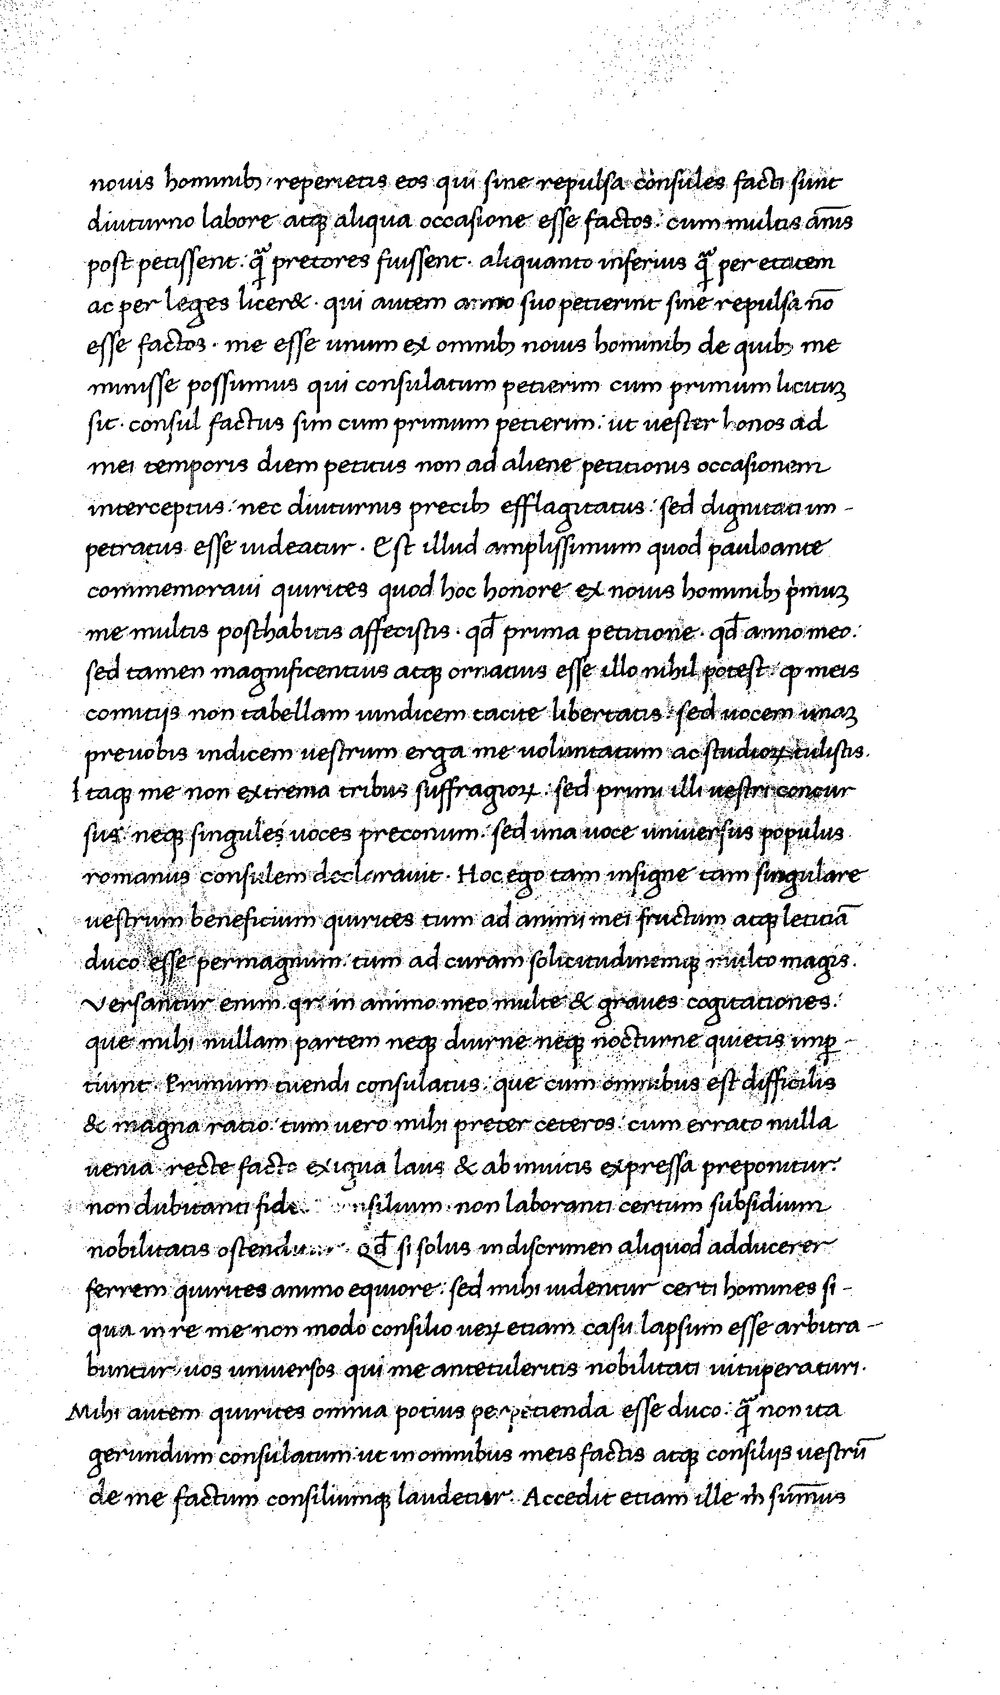 nouis hominibꝫ reperietis eos qui sine repulsa consules facti sunt
diuturno labore atqꝫ aliqua occasione esse factos: cum multis an̅is
post petissent: qᷓ pretores fuissent· aliquanto inferius qᷓ per etatem
ac per leges licer&· qui autem anno suo petierint sine repulsa no̅
esse factos· me esse unum ex omnibꝫ nouis hominibꝫ de quibꝫ me
minisse possumus qui consulatum petierim cum primum licituꝫ
sit· consul factus sim cum primum petierim: ut uester honos ad
mei temporis diem petitus non ad aliene petitionis occasionem
interceptus: nec diuturnis precibꝫ efflagitatus: sed dignitati im-
petratus esse uideatur· Est illud amplissimum quod pauloante
commemoraui quirites quod hoc honore ex nouis hominibꝫ pͥmuꝫ
me multis posthabitis affecistis· qd̅ prima petitione· qd̅ anno meo:
sed tamen magnificentius atqꝫ ornatius esse illo nihil potest: ꝙ meis
comitijs non tabellam uindicem tacite libertatis: sed uocem unaꝫ
preuobis indicem uestrum erga me uoluntatum ac studioꝝ tulistis.
Itaqꝫ me non extrema tribus suffragioꝝ: sed primi illi uestri concur
sus: neqꝫ singules uoces preconum: sed una uoce uniuersus populus
romanus consulem declarauit· Hoc ego tam insigne tam singulare
uestrum beneficium quirites tum ad animi mei fructum atqꝫ letitia̅
duco esse permagnum: tum ad curam solicitudinemqꝫ multo magis.
Versantur enim qr̅ in animo meo multe & graues cogitationes:
que mihi nullam partem neqꝫ diurne neqꝫ nocturne quietis imꝑ-
tiunt· Primum tuendi consulatus: que cum omnibus est difficilis
& magna ratio: tum uero mihi preter ceteros: cum errato nulla
uenia· recte facto exigua laus & ab inuitis expressa preponitur:
non dubitanti non laboranti certum subsidium
nobilitatis Qd̅ si solus in discrimen aliquod adducerer
ferrem quirites animo equiore: sed mihi uidentur certi homines si-
qua in re me non modo consilio ueꝝ etiam casu lapsum esse arbitra-
buntur· uos uniuersos qui me antetuleritis nobilitati uituperaturi.
Mihi autem quirites omnia potius perpetienda esse duco: qᷓ non ita
gerundum consulatum ut in omnibus meis factis atqꝫ consilijs uestru̅
de me factum consiliumqꝫ laudetur. Accedit etiam ille m̅ sum̅us